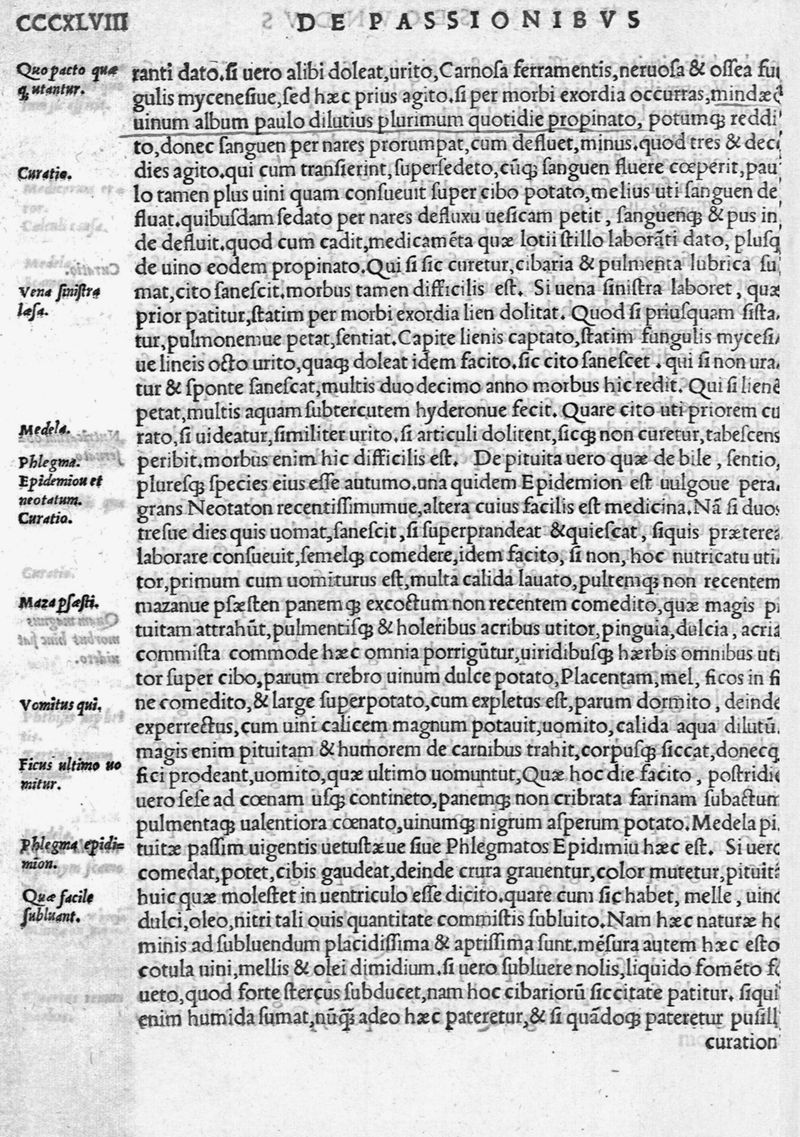 CCCXLVIII DE PASSIONIBVS
Quo pacto quæ
q, utantur.
ranti dato.ſi uero alibi doleat,urito,Carnoſa ferramentis,neruoſa & oſſea fu
gulis myceneſiue,ſed hæc prius agito.ſi per morbi exordia occurras,mindæ
uinum album paulo dilutius plurimum quotidie propinato, potumqꝫ reddi
to,donec ſanguen per nares prorumpat,cum defluet,minus.quod tres & deci
Curatio.
dies agito.qui cum tranſierint,ſuperſedeto,cūqꝫ ſanguen fluere cœperit,pau
lo tamen plus uini quam conſueuit ſuper cibo potato,melius uti ſanguen de
fluat.quibuſdam ſedato per nares defluxu ueſicam petit, ſanguenqꝫ & pus in
de defluit.quod cum cadit,medicamēta quæ lotii ſtillo laborāti dato, pluſq
de uino eodem propinato.Qui ſi ſic curetur,cibaria & pulmenta lubrica ſu
Vena ſiniſtra
læſa.
mat,cito ſaneſcit.morbus tamen difficilis eſt. Si uena ſiniſtra laboret, quæ
prior patitur,ſtatim per morbi exordia lien dolitat. Quod ſi priuſquam ſiſta
tur,pulmonemue petat,ſentiat.Capite lienis captato,ſtatim fungulis myceſi
ue lineis octo urito,quaqꝫ doleat idem facito.ſic cito ſaneſcet. qui ſi non ura
tur & ſponte ſaneſcat,multis duodecimo anno morbus hic redit. Qui ſi lienē
petat,multis aquam ſubtercutem hyderonue fecit. Quare cito uti priorem cu
Medela.
rato,ſi uideatur,ſimiliter urito.ſi articuli dolitent,ſicqꝫ non curetur,tabeſcens
Phlegma.
peribit.morbus enim hic difficilis eſt. De pituita uero quæ de bile, ſentio,
Epidemion et
neotatum.
plureſqꝫ ſpecies eius eſſe autumo.una quidem Epidemion eſt uulgoue pera
Curatio.
grans Neotaton recentiſſimumue,altera cuius facilis eſt medicina.Nā ſi duos
treſue dies quis uomat,ſaneſcit,ſi ſuperprandeat &quieſcat, ſiquis præterea
laborare conſueuit,ſemelqꝫ comedere,idem facito, ſi non, hoc nutricatu uti
tor,primum cum uomiturus eſt,multa calida lauato,pultemqꝫ non recentem
Maza pſæſti.
mazanue pſæſten panemqꝫ excoctum non recentem comedito,quæ magis pi
tuitam attrahūt,pulmentiſqꝫ & holeribus acribus utitor,pinguia,dulcia, acria
commiſta commode hæc omnia porrigūtur,uiridibuſqꝫ hærbis omnibus uti
tor ſuper cibo,parum crebro uinum dulce potato,Placentam,mel, ficos in fi
Vomitus qui.
ne comedito,& large ſuperpotato,cum expletus eſt,parum dormito, deinde
experrectus,cum uini calicem magnum potauit,uomito,calida aqua dilutū.
magis enim pituitam & humorem de carnibus trahit,corpuſqꝫ ſiccat,donecq
Ficus ultimo uo
mitur.
fici prodeant,uomito,quæ ultimo uomuntut,Quæ hoc die facito, poſtridie
uero ſeſe ad cœnam uſqꝫ contineto,panemqꝫ non cribrata farinam ſubactum
pulmentaqꝫ ualentiora cœnato,uinumqꝫ nigrum aſperum potato.Medela pi
Phlegma epidi=
mion.
tuitæ paſſim uigentis uetuſtæue ſiue Phlegmatos Epidimiu hæc eſt. Si uero
comedat,potet,cibis gaudeat,deinde crura grauentur,color mutetur,pituitā
Quæ facile
ſubluant.
huic quæ moleſtet in uentriculo eſſe dicito.quare cum ſic habet, melle, uino
dulci,oleo,nitri tali ouis quantitate commiſtis ſubluito.Nam hæc naturæ ho
minis ad ſubluendum placidiſſima & aptiſſima ſunt.mēſura autem hæc eſto
cotula uini,mellis & olei dimidium.ſi uero ſubluere nolis,liquido fomēto f
ueto,quod forte ſtercus ſubducet,nam hoc cibariorū ſiccitate patitur. ſiqui
enim humida ſumat,nūqꝫ adeo hæc pateretur,& ſi quādoqꝫ pateretur puſill
curation